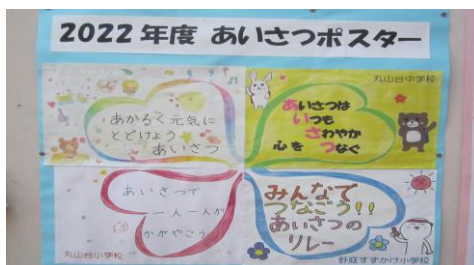 2022年度 あいさつポスター
あかるく元気に
とどけよう
あいさつ
丸山台中学校
あいさつは
いつも
さわやか
心をつなぐ
あいさつで
一人一人が
かがやこう
丸山台小学校
みんなで
つなごう!!
あいさつの
リレー
野庭すずかけ小学校